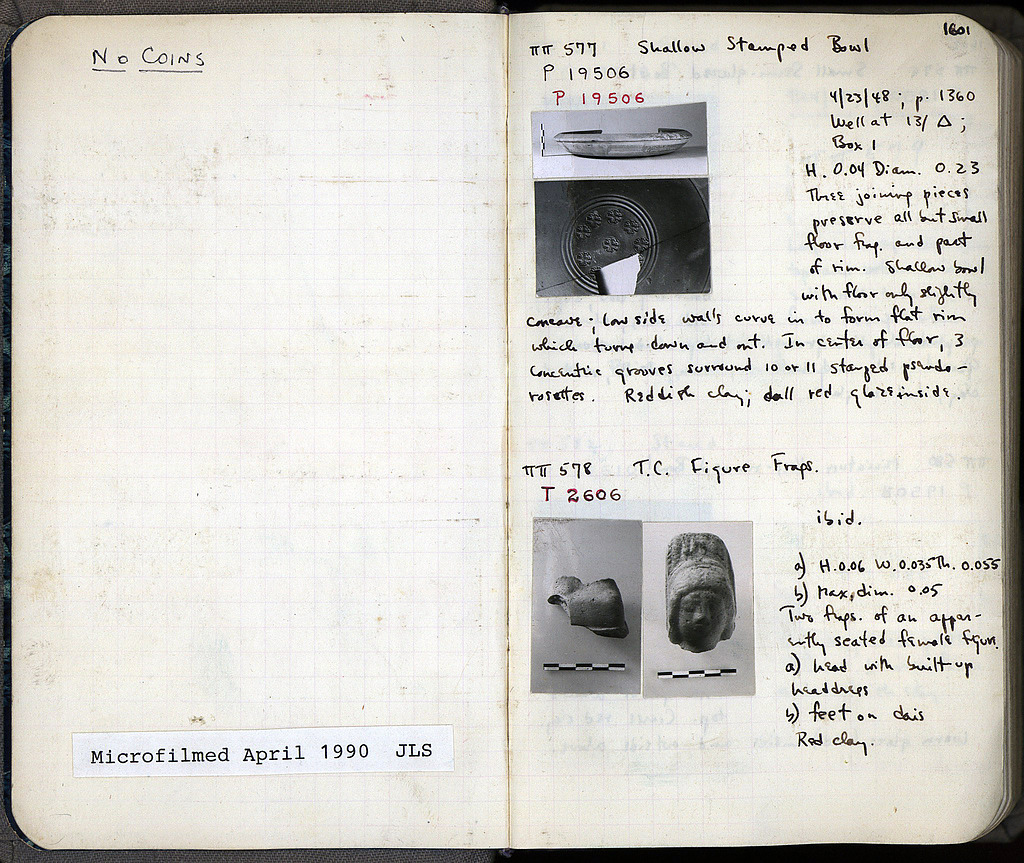 No COINS
Microfilmed April 1990 JLS
1601
ΠΠ 577 Shallow Stamped Bowl
P 19506
P 19506
4/23/48 ; p. 1360
Well at 13/Δ ;
Box 1
H. 0.04 Diam. 0.23
Three joining pieces
preserve all but small
floor frag. and part
of rim. Shallow bowl
with floor only slightly
concave ; low side walls curve in to form flat rim
which turns down and out. In center of floor, 3
concentric grooves surround 10 or 11 stamped pseudo-
rosettes. Reddish clay; dull red glaze inside.
ΠΠ 578 T.C. Figure Frags.
T 2606
ibid.
a) H. 0.06 W. 0.035 Th. 0.055
b) Max. dim. 0.05
Two frags. of an appar-
ently seated female figure.
a) head with built-up
headdress
b) feet on dais
Red clay.